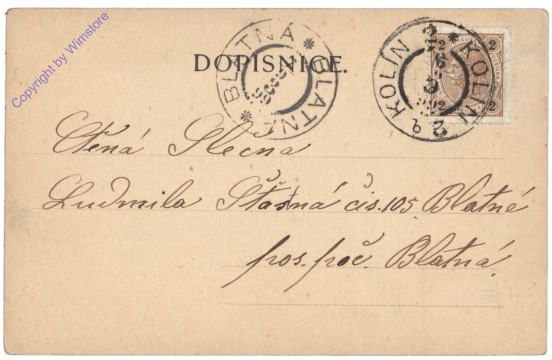 Copyright by Wimstore
DOPISNICE.
BLATNÁ * BLATNÁ *
KOLÍN 2 * KOLÍN 2
2 2
2 2
Ctěná Slečna
Ludmila Šťasná čís. 105 Blatné
pos. poč. Blatná